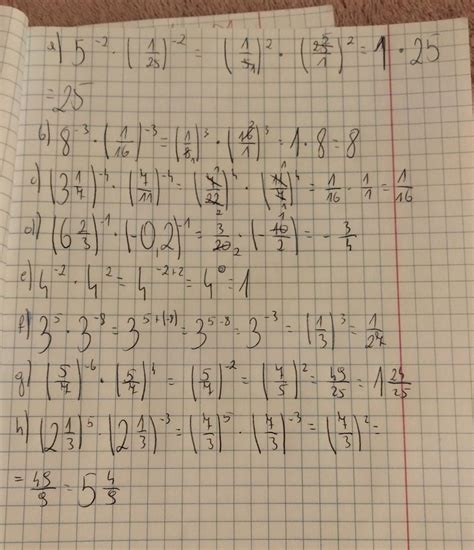 a) 5^-2 · (1/25)^-2 = (1/5)^2 · (25/1)^2 = 1 · 25
= 25
b) 8^-3 · (1/16)^-3 = (1/8)^3 · (16/1)^3 = 1 · 8 = 8
c) (3 1/7)^-4 · (7/11)^-4 = (7/22)^4 · (11/7)^4 = 1/16 · 1/1 = 1/16
d) (6 2/3)^-1 · (-0,2)^-1 = 3/20 · (-10/2) = - 3/4
e) 4^-2 · 4^2 = 4^-2+2 = 4^0 = 1
f) 3^5 · 3^-8 = 3^5+(-8) = 3^5-8 = 3^-3 = (1/3)^3 = 1/27
g) (5/7)^-6 · (5/7)^4 = (5/7)^-2 = (7/5)^2 = 49/25 = 1 24/25
h) (2 1/3)^5 · (2 1/3)^-3 = (7/3)^5 · (7/3)^-3 = (7/3)^2 =
= 49/9 = 5 4/9